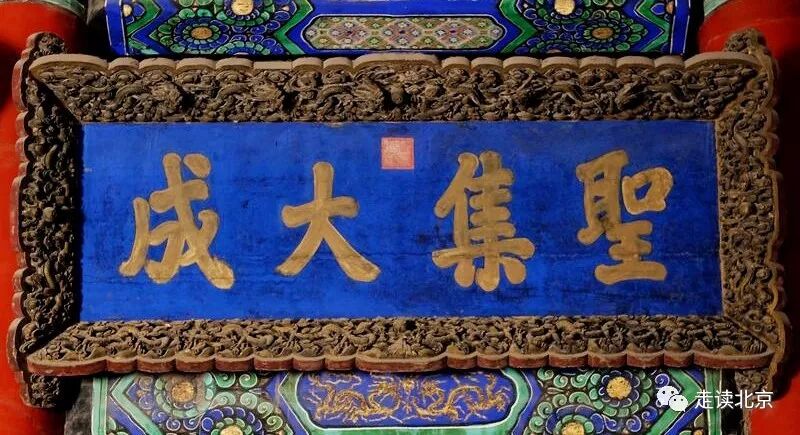 聖集大成
走读北京